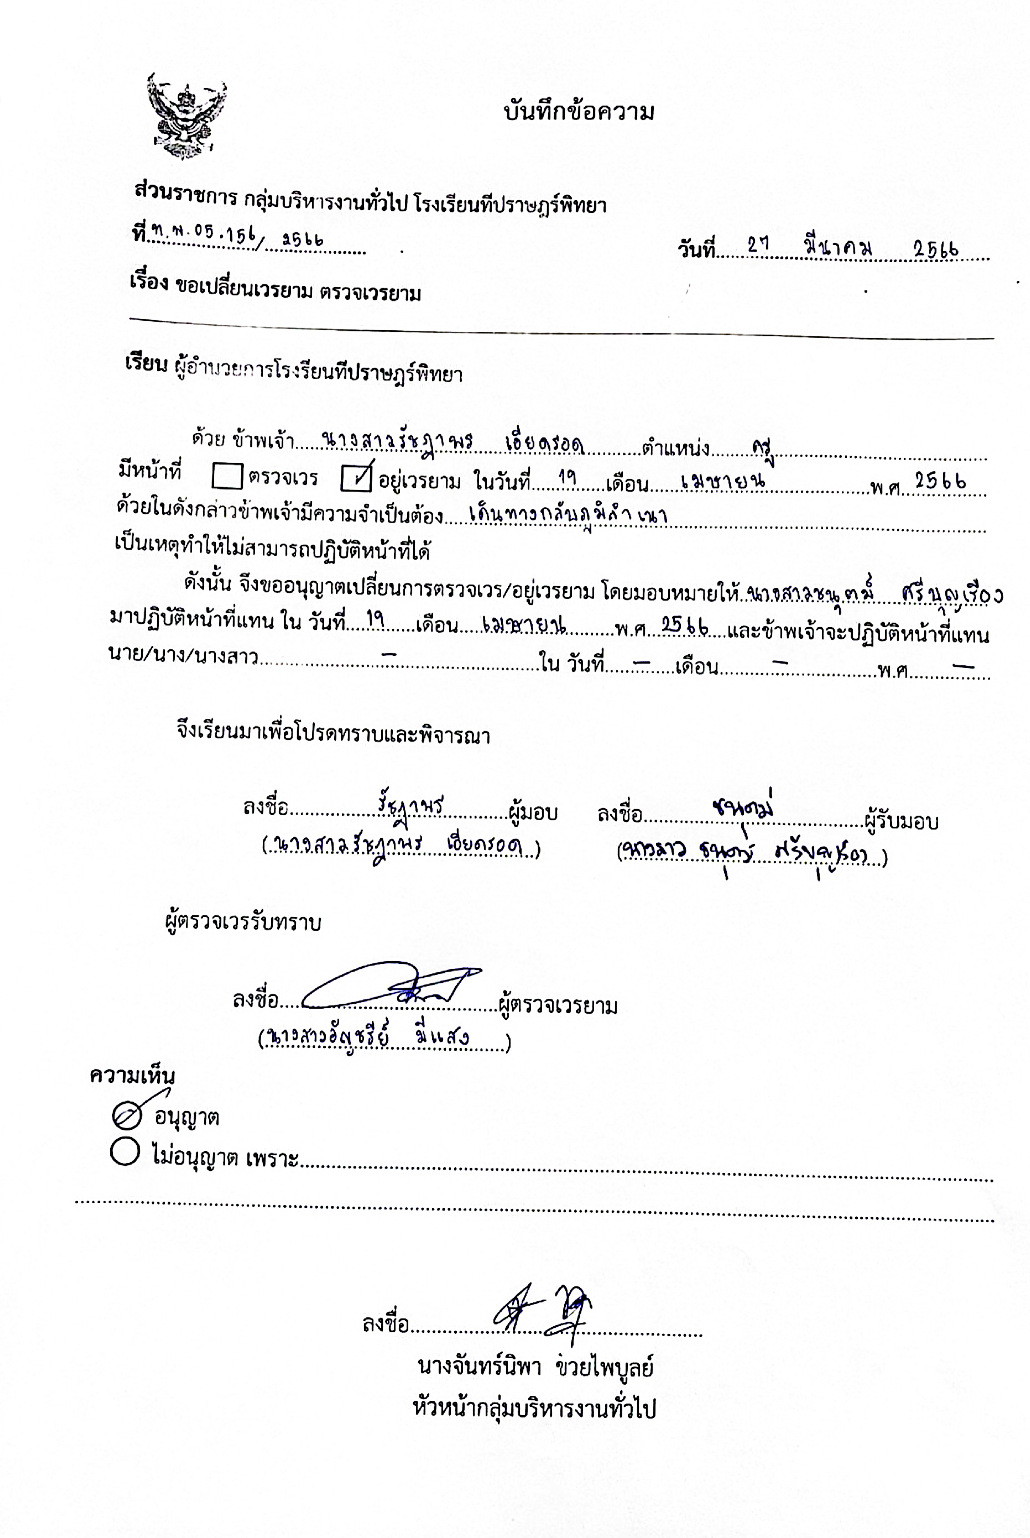 บันทึกข้อความ
ส่วนราชการ กลุ่มบริหารงานทั่วไป โรงเรียนทีปราษฎร์พิทยา
ที่ ท.พ.05.156/ 2566 วันที่ 27 มีนาคม 2566
เรื่อง ขอเปลี่ยนเวรยาม ตรวจเวรยาม
เรียน ผู้อำนวยการโรงเรียนทีปราษฎร์พิทยา
ด้วย ข้าพเจ้า นางสาวรัชฎาพร เอียดรอด ตำแหน่ง ครู
มีหน้าที่ ตรวจเวร ✓ อยู่เวรยาม ในวันที่ 19 เดือน เมษายน พ.ศ. 2566
ด้วยในดังกล่าวข้าพเจ้ามีความจำเป็นต้อง เดินทางกลับภูมิลำเนา
เป็นเหตุทำให้ไม่สามารถปฏิบัติหน้าที่ได้
ดังนั้น จึงขออนุญาตเปลี่ยนการตรวจเวร/อยู่เวรยาม โดยมอบหมายให้ นางสาวชนุตม์ ศรีบุญเรือง
มาปฏิบัติหน้าที่แทน ใน วันที่ 19 เดือน เมษายน พ.ศ. 2566 และข้าพเจ้าจะปฏิบัติหน้าที่แทน
นาย/นาง/นางสาว - ใน วันที่ - เดือน - พ.ศ. -
จึงเรียนมาเพื่อโปรดทราบและพิจารณา
ลงชื่อ รัชฎาพร ผู้มอบ ลงชื่อ ชนุตม์ ผู้รับมอบ
(นางสาวรัชฎาพร เอียดรอด) (นางสาว ชนุตม์ ศรีบุญเรือง)
ผู้ตรวจเวรรับทราบ
ลงชื่อ ผู้ตรวจเวรยาม
(นางสาวอัญชรีย์ มีแสง)
ความเห็น
อนุญาต
ไม่อนุญาต เพราะ
ลงชื่อ
นางจันทร์นิพา ช่วยไพบูลย์
หัวหน้ากลุ่มบริหารงานทั่วไป